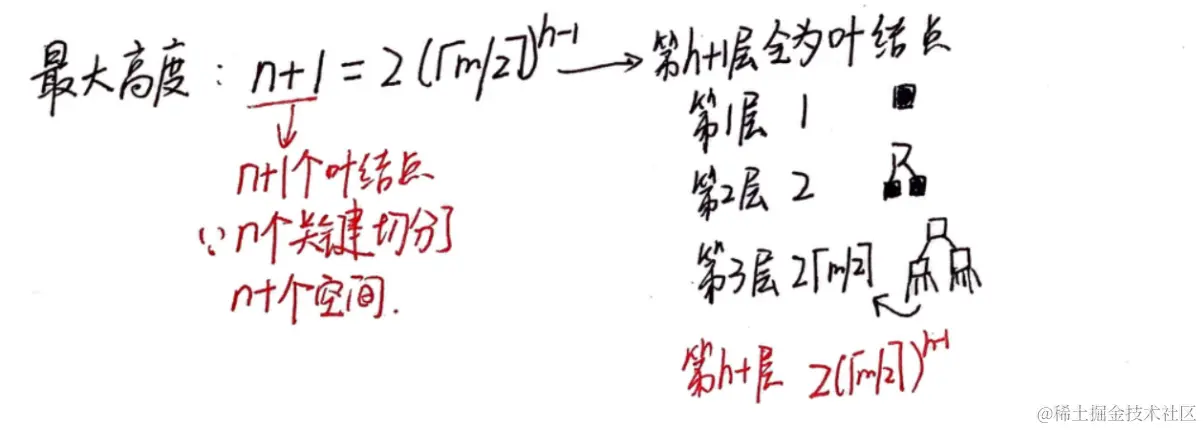 最大高度: n+1 = 2(⌈m/2⌉)^{h-1} → 第h+1层全为叶结点
n+1个叶结点
∵ n个关键切分了
n+1个空间.
第1层 1
第2层 2
第3层 2⌈m/2⌉
第h+1层 2(⌈m/2⌉)^{h-1}
@稀土掘金技术社区